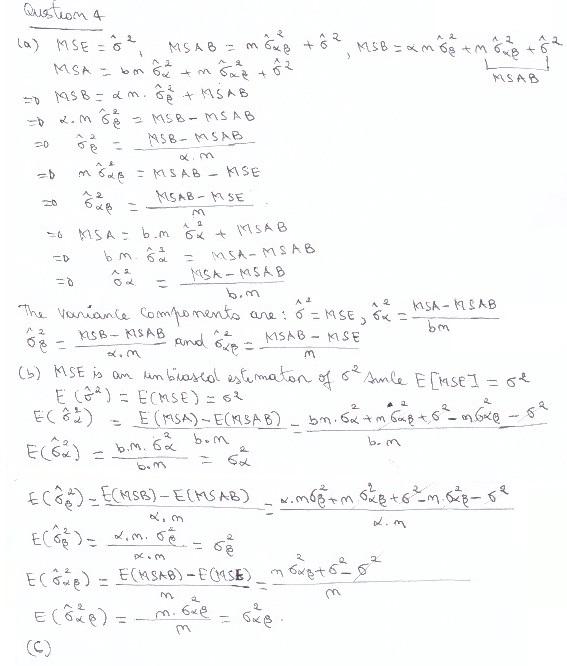 Question 4
(a) MSE = σ̂², MSAB = m σ̂²αβ + σ̂², MSB = αm σ̂²β + m σ̂²αβ + σ̂²
MSAB
MSA = bm σ̂²α + m σ̂²αβ + σ̂²
=> MSB = α m. σ̂²β + MSAB
=> α.m σ̂²β = MSB - MSAB
=> σ̂²β = (MSB - MSAB) / α.m
=> m σ̂²αβ = MSAB - MSE
=> σ̂²αβ = (MSAB - MSE) / m
=> MSA = b.m σ̂²α + MSAB
=> b m. σ̂²α = MSA - MSAB
=> σ̂²α = (MSA - MSAB) / b.m
The variance components are: σ̂² = MSE, σ̂²α = (MSA - MSAB) / bm
σ̂²β = (MSB - MSAB) / α.m and σ̂²αβ = (MSAB - MSE) / m
(b) MSE is an unbiased estimator of σ² since E[MSE] = σ²
E(σ̂²) = E(MSE) = σ²
E(σ̂²α) = (E(MSA) - E(MSAB)) / b.m = (bm.σ²α + m σ²αβ + σ² - m σ²αβ - σ²) / b.m
E(σ̂²α) = (b.m. σ²α) / b.m = σ²α
E(σ̂²β) = (E(MSB) - E(MSAB)) / α.m = (α.m σ²β + m σ²αβ + σ² - m.σ²αβ - σ²) / α.m
E(σ̂²β) = (α.m. σ²β) / α.m = σ²β
E(σ̂²αβ) = (E(MSAB) - E(MSE)) / m = (m σ²αβ + σ² - σ²) / m
E(σ̂²αβ) = (m. σ²αβ) / m = σ²αβ.
(C)